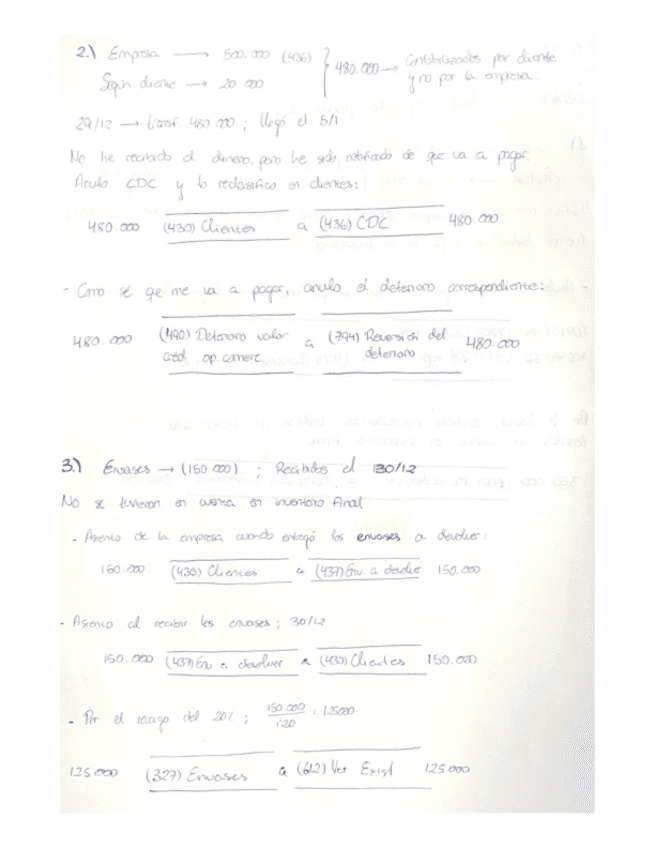 2.) Empresa → 500.000 (436)
Según cliente → 20.000
} 480.000 → Contabilizados por cliente
y no por la empresa.
29/12 → transf. 480.000 ; llegó el 5/1
No he recibido el dinero, pero he sido notificado de que va a pagar.
Anulo CDC y lo reclasifico en clientes:
480.000 (430) Clientes a (436) CDC 480.000
- Como sé que me va a pagar, anulo el deterioro correspondiente:
480.000 (490) Deterioro valor a (794) Reversión del 480.000
créd. op. comerc. deterioro
3.) Envases → (150.000) ; Recibidos el 30/12
No se tuvieron en cuenta en inventario final
- Asiento de la empresa cuando entregó los envases a devolver:
150.000 (430) Clientes a (437) Env. a devolver 150.000
- Asiento al recibir los envases ; 30/12
150.000 (437) Env a devolver a (430) Clientes 150.000
- Por el recargo del 20% ; 150.000 / 1'20 = 125000
125.000 (327) Envases a (612) Var. Exist 125.000